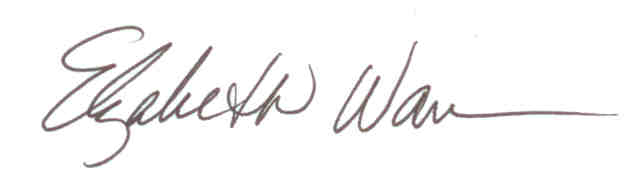 Elizabeth Warren